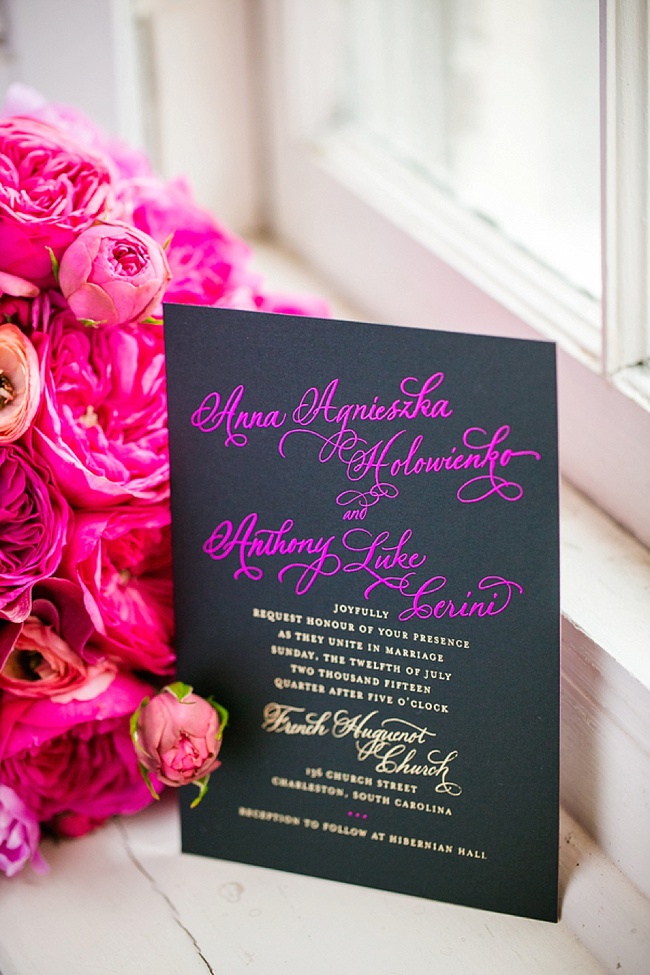 Anna Agnieszka
Holowienko
and
Anthony Luke
Cerini
JOYFULLY
REQUEST HONOUR OF YOUR PRESENCE
AS THEY UNITE IN MARRIAGE
SUNDAY, THE TWELFTH OF JULY
TWO THOUSAND FIFTEEN
QUARTER AFTER FIVE O'CLOCK
French Huguenot
Church
136 CHURCH STREET
CHARLESTON, SOUTH CAROLINA
RECEPTION TO FOLLOW AT HIBERNIAN HALL